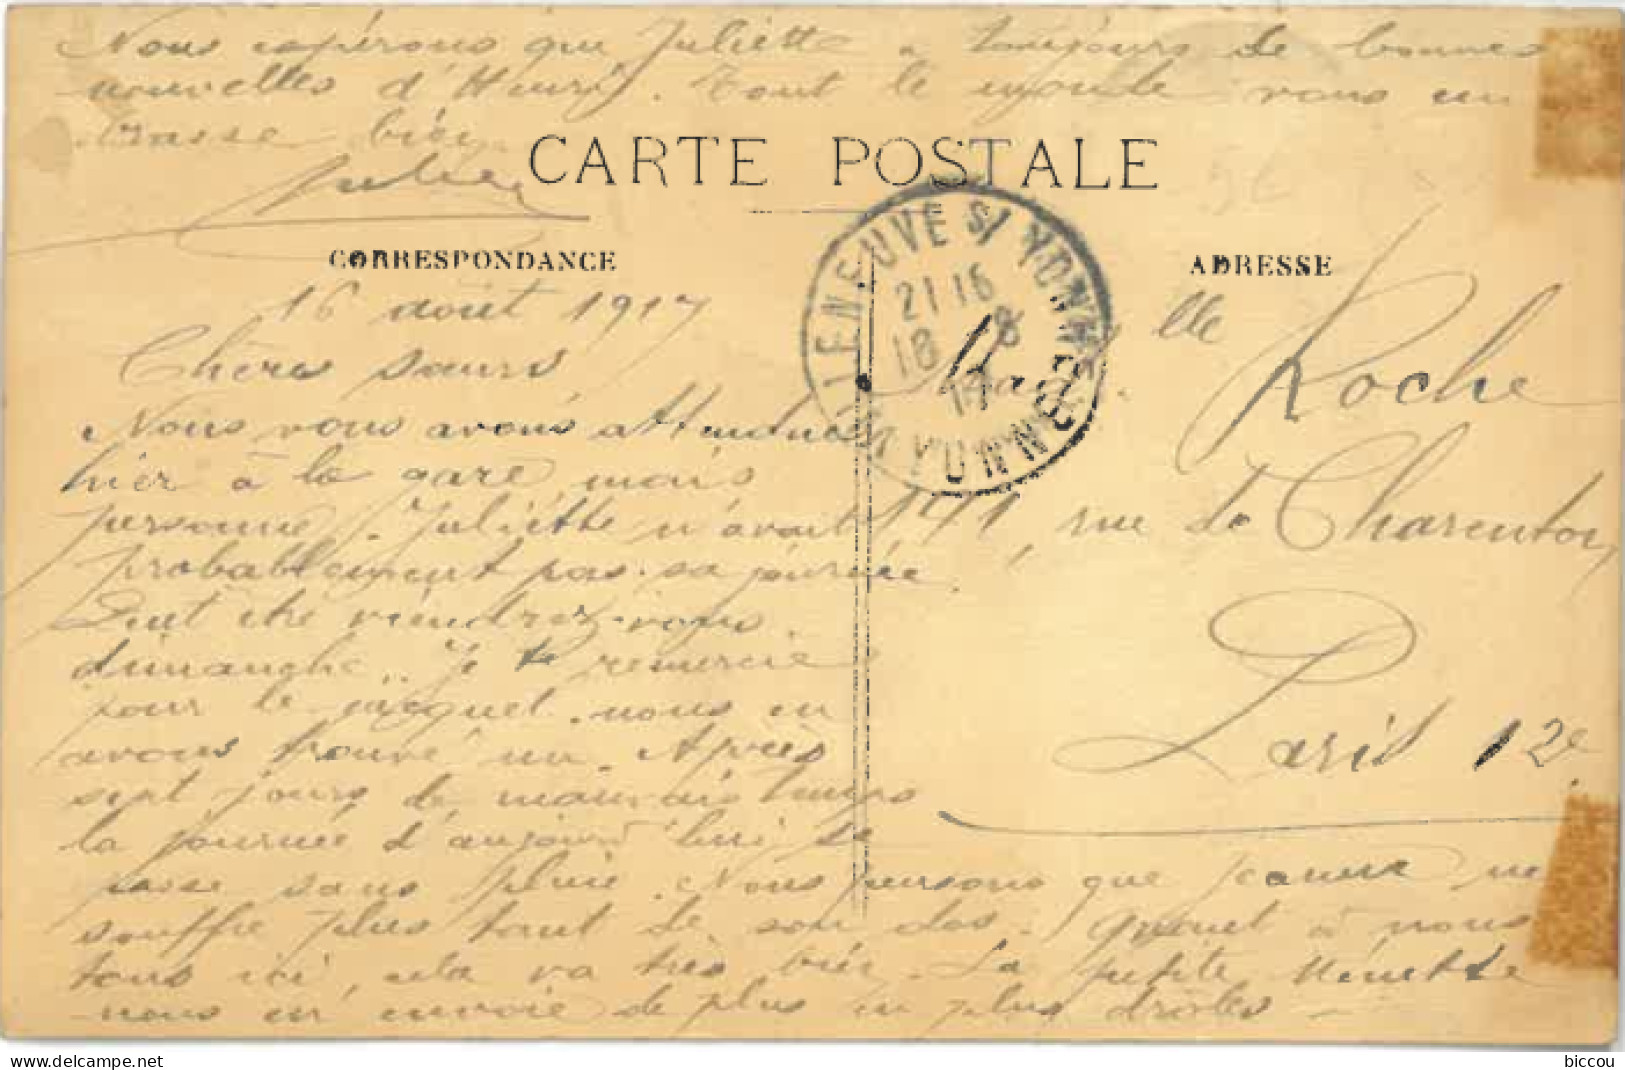 Nous espérons que Juliette a toujours de bonnes
nouvelles d'Henri. Tout le monde vous em
brasse bien.
CARTE POSTALE
CORRESPONDANCE
ADRESSE
16 août 1917
Chères sœurs
Nous vous avons attendues
hier à la gare mais
personne. Juliette n'avait
probablement pas sa journée.
Peut être viendrez-vous
dimanche. Je te remercie
pour le jacquet. nous en
avons trouvé un. Après
sept jours de mauvais temps
la journée d'aujourd'hui se
passe sans pluie. Nous pensons que Jeanne ne
souffre plus tant de son dos. Quant à nous
tous ici, cela va très bien. La petite Ninette
nous en envoie de plus en plus drôles -
VILLENEUVE S/ YONNE
21 15
18 -8
17
YONNE
Mad. elle Roche
171, rue de Charenton
Paris 12e
delcampe.net
biccou